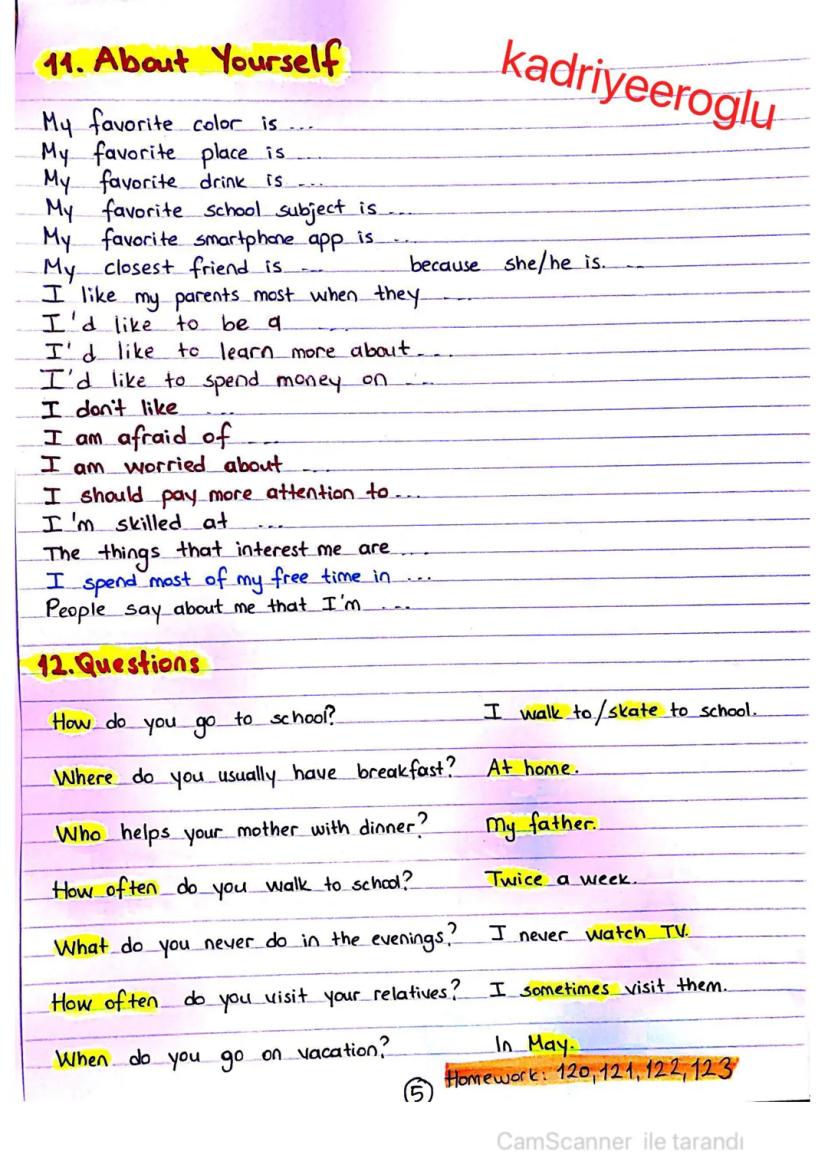 11. About Yourself
kadriyeeroglu
My favorite color is ...
My favorite place is ...
My favorite drink is ...
My favorite school subject is ...
My favorite smartphone app is ...
My closest friend is ... because she/he is. ...
I like my parents most when they ...
I'd like to be a ...
I'd like to learn more about ...
I'd like to spend money on ...
I don't like ...
I am afraid of ...
I am worried about ...
I should pay more attention to ...
I'm skilled at ...
The things that interest me are ...
I spend most of my free time in ...
People say about me that I'm ...
12. Questions
How do you go to school? I walk to/skate to school.
Where do you usually have breakfast? At home.
Who helps your mother with dinner? My father.
How often do you walk to school? Twice a week.
What do you never do in the evenings? I never watch TV.
How often do you visit your relatives? I sometimes visit them.
When do you go on vacation? In May.
5 Homework: 120, 121, 122, 123
CamScanner ile tarandı